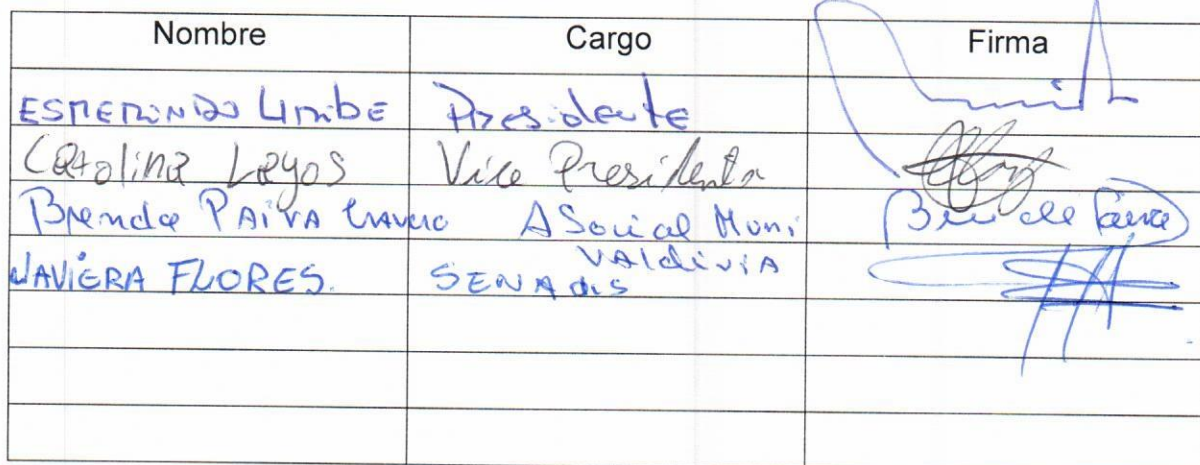 Nombre Cargo Firma
ESMERINDO URIBE Presidente
Carolina Lagos Vice Presidenta
Brenda PAIVA A Social Muni
VALdiviA
JAVIERA FLORES. SENADIS